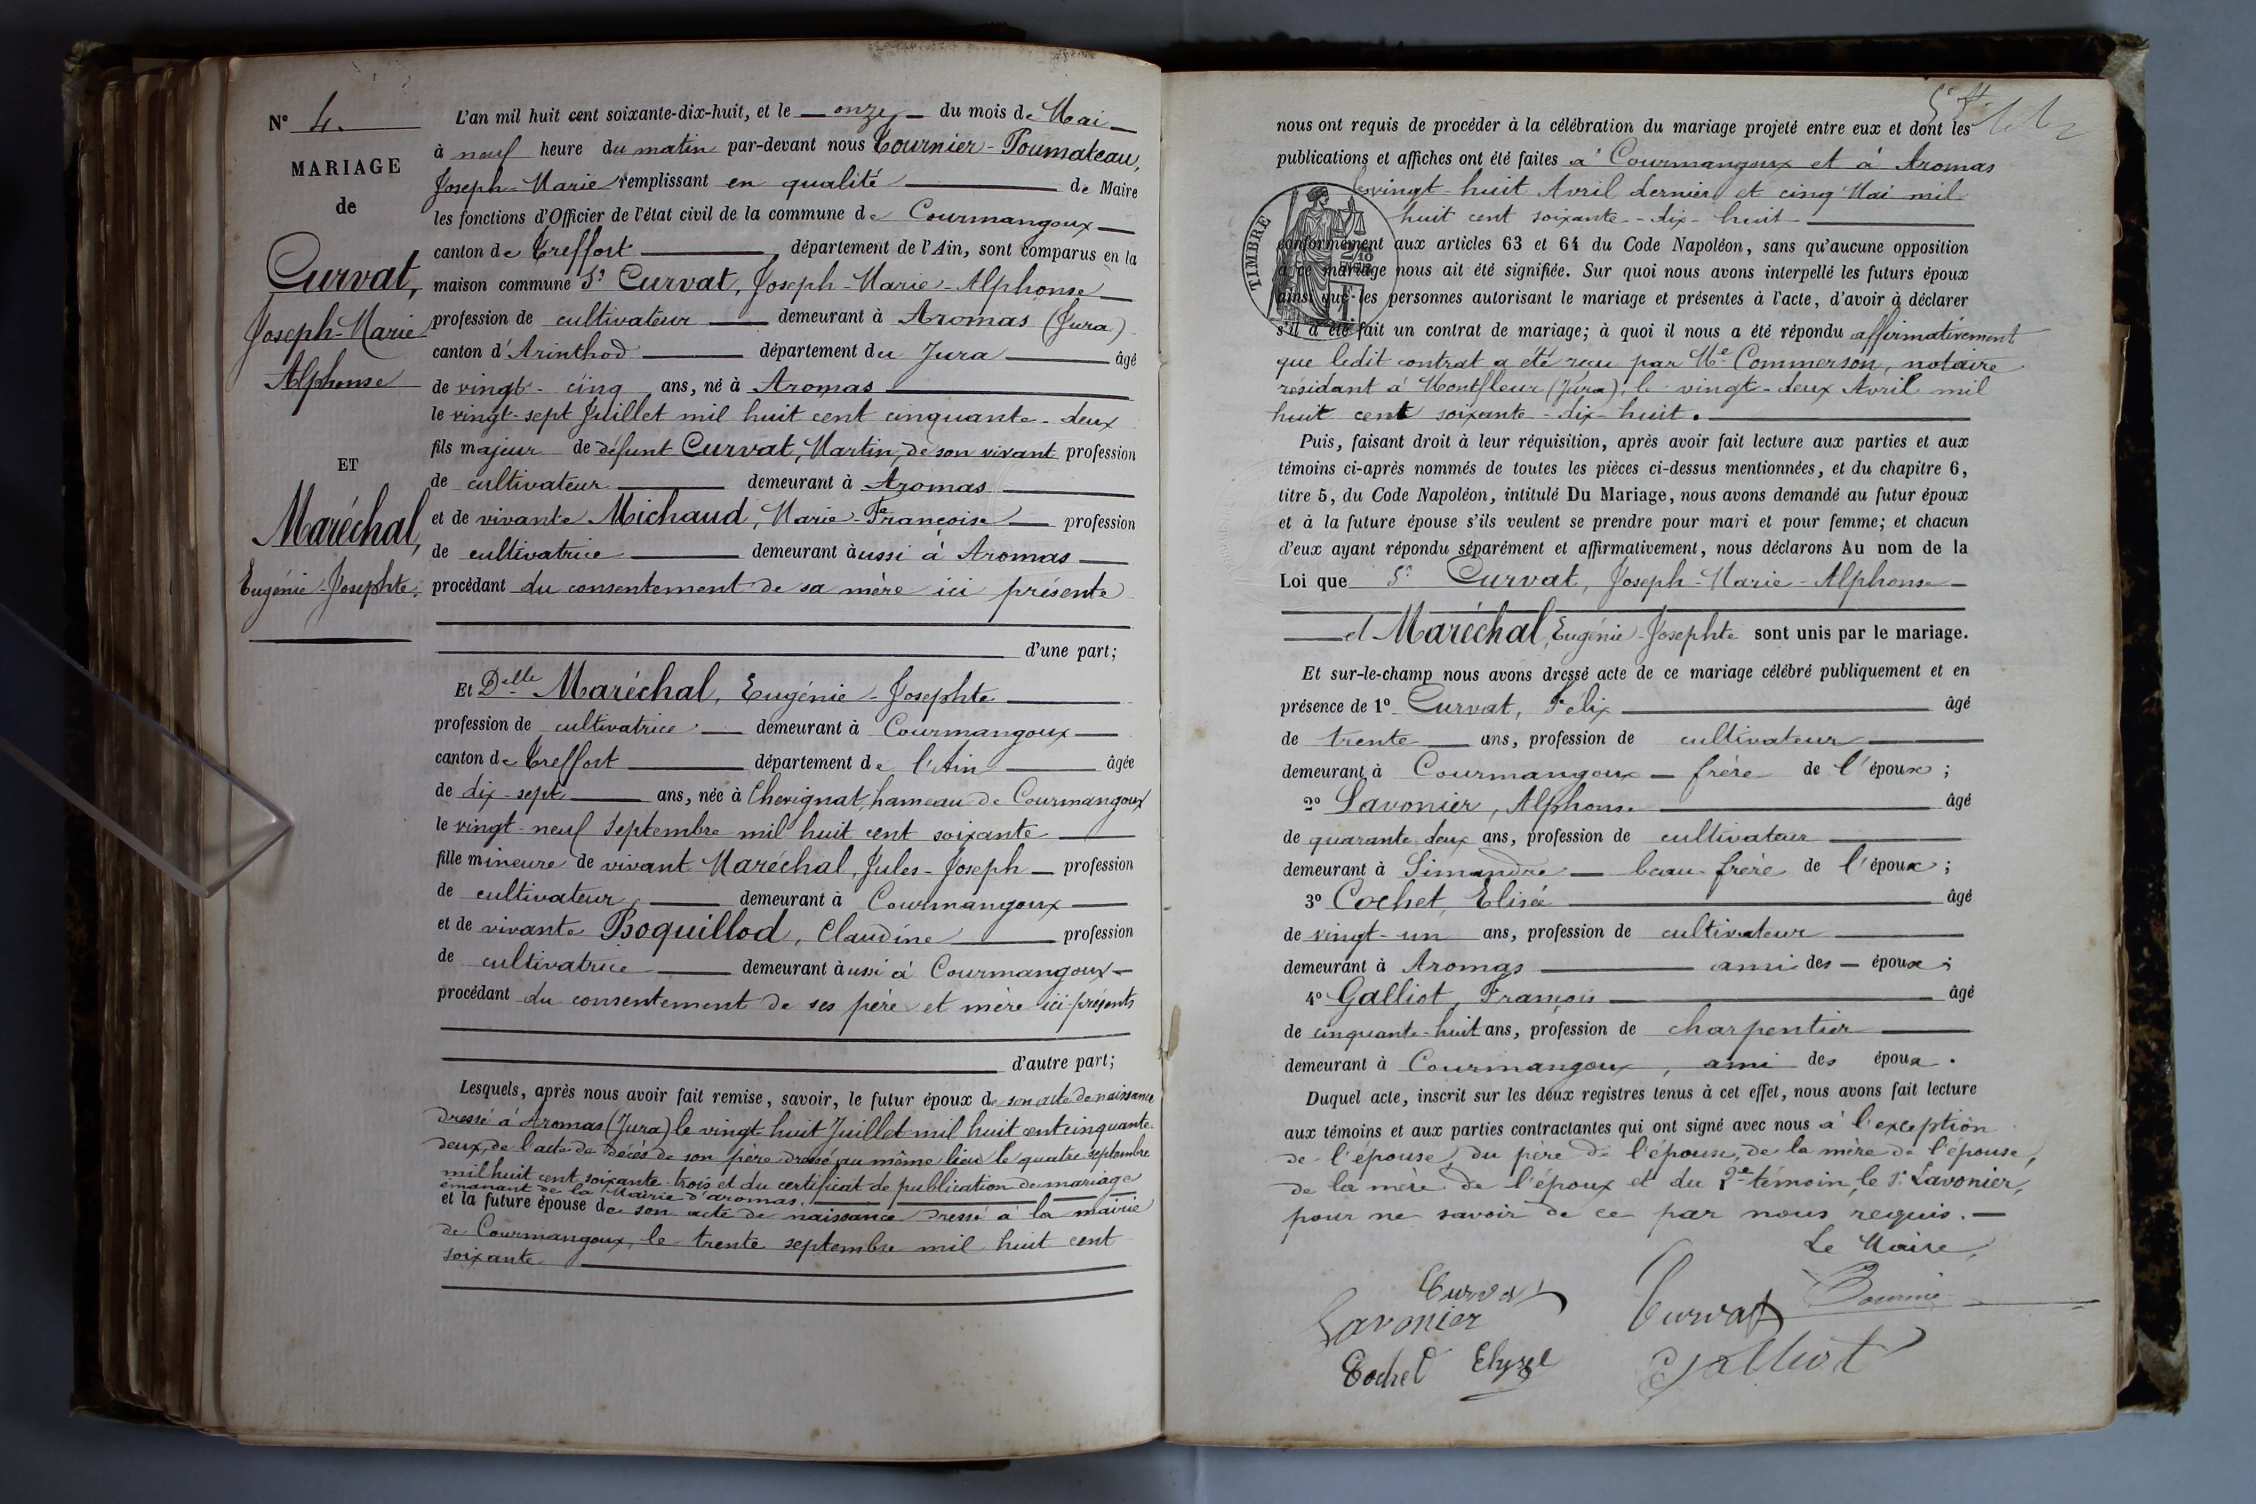 N° 4.
MARIAGE
de
Curvat,
Joseph-Marie
Alphonse
ET
Maréchal,
Eugénie-Josephte.
L'an mil huit cent soixante-dix-huit, et le onze du mois de Mai
à neuf heure du matin par-devant nous Tournier-Poumateau,
Joseph-Marie remplissant en qualité de Maire
les fonctions d'Officier de l'état civil de la commune de Courmangoux
canton de Treffort département de l'Ain, sont comparus en la
maison commune Sr Curvat, Joseph-Marie-Alphonse
profession de cultivateur demeurant à Aromas (Jura)
canton d'Arinthod département du Jura âgé
de vingt-cinq ans, né à Aromas
le vingt-sept Juillet mil huit cent cinquante-deux
fils majeur de défunt Curvat, Martin, de son vivant profession
de cultivateur demeurant à Aromas
et de vivante Michaud, Marie-Françoise profession
de cultivatrice demeurant aussi à Aromas
procédant du consentement de sa mère ici présente
d'une part;
Et Delle Maréchal, Eugénie-Josephte
profession de cultivatrice demeurant à Courmangoux
canton de Treffort département de l'Ain âgée
de dix-sept ans, née à Chevignat, hameau de Courmangoux
le vingt-neuf Septembre mil huit cent soixante
fille mineure de vivant Maréchal, Jules-Joseph profession
de cultivateur demeurant à Courmangoux
et de vivante Boquillod, Claudine profession
de cultivatrice demeurant aussi à Courmangoux
procédant du consentement de ses père et mère ici présents
d'autre part;
Lesquels, après nous avoir fait remise, savoir, le futur époux de son acte de naissance
dressé à Aromas (Jura) le vingt-huit Juillet mil huit cent cinquante-
deux, de l'acte de décès de son père dressé au même lieu le quatre septembre
mil huit cent soixante-trois et du certificat de publication de mariage
émanant de la Mairie d'aromas.
et la future épouse de son acte de naissance dressé à la mairie
de Courmangoux, le trente septembre mil huit cent
soixante
nous ont requis de procéder à la célébration du mariage projeté entre eux et dont les
publications et affiches ont été faites à Courmangoux et à Aromas
les vingt-huit Avril dernier et cinq Mai mil
huit cent soixante-dix-huit
TIMBRE
conformément aux articles 63 et 64 du Code Napoléon, sans qu'aucune opposition
à ce mariage nous ait été signifiée. Sur quoi nous avons interpellé les futurs époux
ainsi que les personnes autorisant le mariage et présentes à l'acte, d'avoir à déclarer
s'il a été fait un contrat de mariage; à quoi il nous a été répondu affirmativement
que ledit contrat a été reçu par Me Commerson, notaire
résidant à Montfleur (Jura), le vingt-deux Avril mil
huit cent soixante-dix-huit.
Puis, faisant droit à leur réquisition, après avoir fait lecture aux parties et aux
témoins ci-après nommés de toutes les pièces ci-dessus mentionnées, et du chapitre 6,
titre 5, du Code Napoléon, intitulé Du Mariage, nous avons demandé au futur époux
et à la future épouse s'ils veulent se prendre pour mari et pour femme; et chacun
d'eux ayant répondu séparément et affirmativement, nous déclarons Au nom de la
Loi que Sr Curvat, Joseph-Marie-Alphonse
et Maréchal, Eugénie-Josephte sont unis par le mariage.
Et sur-le-champ nous avons dressé acte de ce mariage célébré publiquement et en
présence de 1° Curvat, Félix âgé
de trente ans, profession de cultivateur
demeurant à Courmangoux frère de l'époux;
2° Lavonier, Alphonse âgé
de quarante-deux ans, profession de cultivateur
demeurant à Simandre beau-frère de l'époux;
3° Cochet, Elisé âgé
de vingt-un ans, profession de cultivateur
demeurant à Aromas ami des époux;
4° Galliot, François âgé
de cinquante-huit ans, profession de charpentier
demeurant à Courmangoux, ami des époux.
Duquel acte, inscrit sur les deux registres tenus à cet effet, nous avons fait lecture
aux témoins et aux parties contractantes qui ont signé avec nous à l'exception
de l'épouse, du père de l'épouse, de la mère de l'épouse,
de la mère de l'époux et du 2e témoin, le Sr Lavonier,
pour ne savoir de ce par nous requis.
Le Maire,
Curvat
Lavonier
Curvat
Cochet Elysée
Galliot